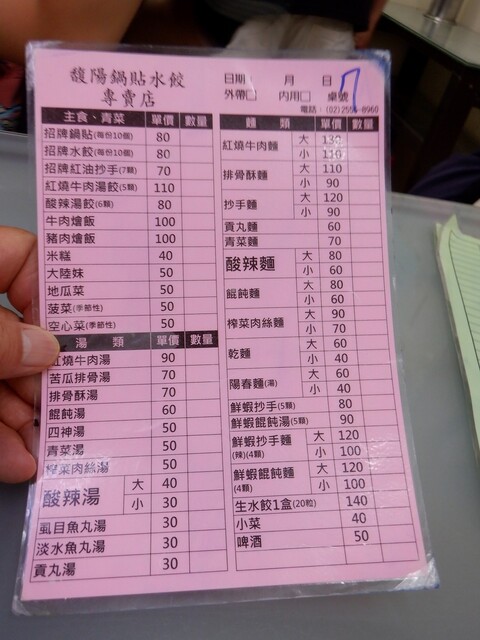 馥陽鍋貼水餃
專賣店
日期 月 日
外帶□ 內用□ 桌號 7
電話：(02)2559-8960
主食、青菜 單價 數量
招牌鍋貼(每份10個) 80
招牌水餃(每份10個) 80
招牌紅油抄手(7顆) 70
紅燒牛肉湯餃(5顆) 110
酸辣湯餃(6顆) 80
牛肉燴飯 100
豬肉燴飯 100
米糕 40
大陸妹 50
地瓜菜 50
菠菜(季節性) 50
空心菜(季節性) 50
湯 類 單價 數量
紅燒牛肉湯 90
苦瓜排骨湯 70
排骨酥湯 70
餛飩湯 60
四神湯 50
青菜湯 50
榨菜肉絲湯 50
酸辣湯 大 40
小 30
虱目魚丸湯 30
淡水魚丸湯 30
貢丸湯 30
麵 類 單價 數量
紅燒牛肉麵 大 130
小 110
排骨酥麵 大 110
小 90
抄手麵 大 120
小 90
貢丸麵 60
青菜麵 70
酸辣麵 大 80
小 60
餛飩麵 大 80
小 60
榨菜肉絲麵 大 90
小 70
乾麵 大 60
小 40
陽春麵(湯) 大 60
小 40
鮮蝦抄手(5顆) 80
鮮蝦餛飩湯(5顆) 90
鮮蝦抄手麵 大 120
(辣)(4顆) 小 100
鮮蝦餛飩麵 大 120
(4顆) 小 100
生水餃1盒(20粒) 140
小菜 40
啤酒 50